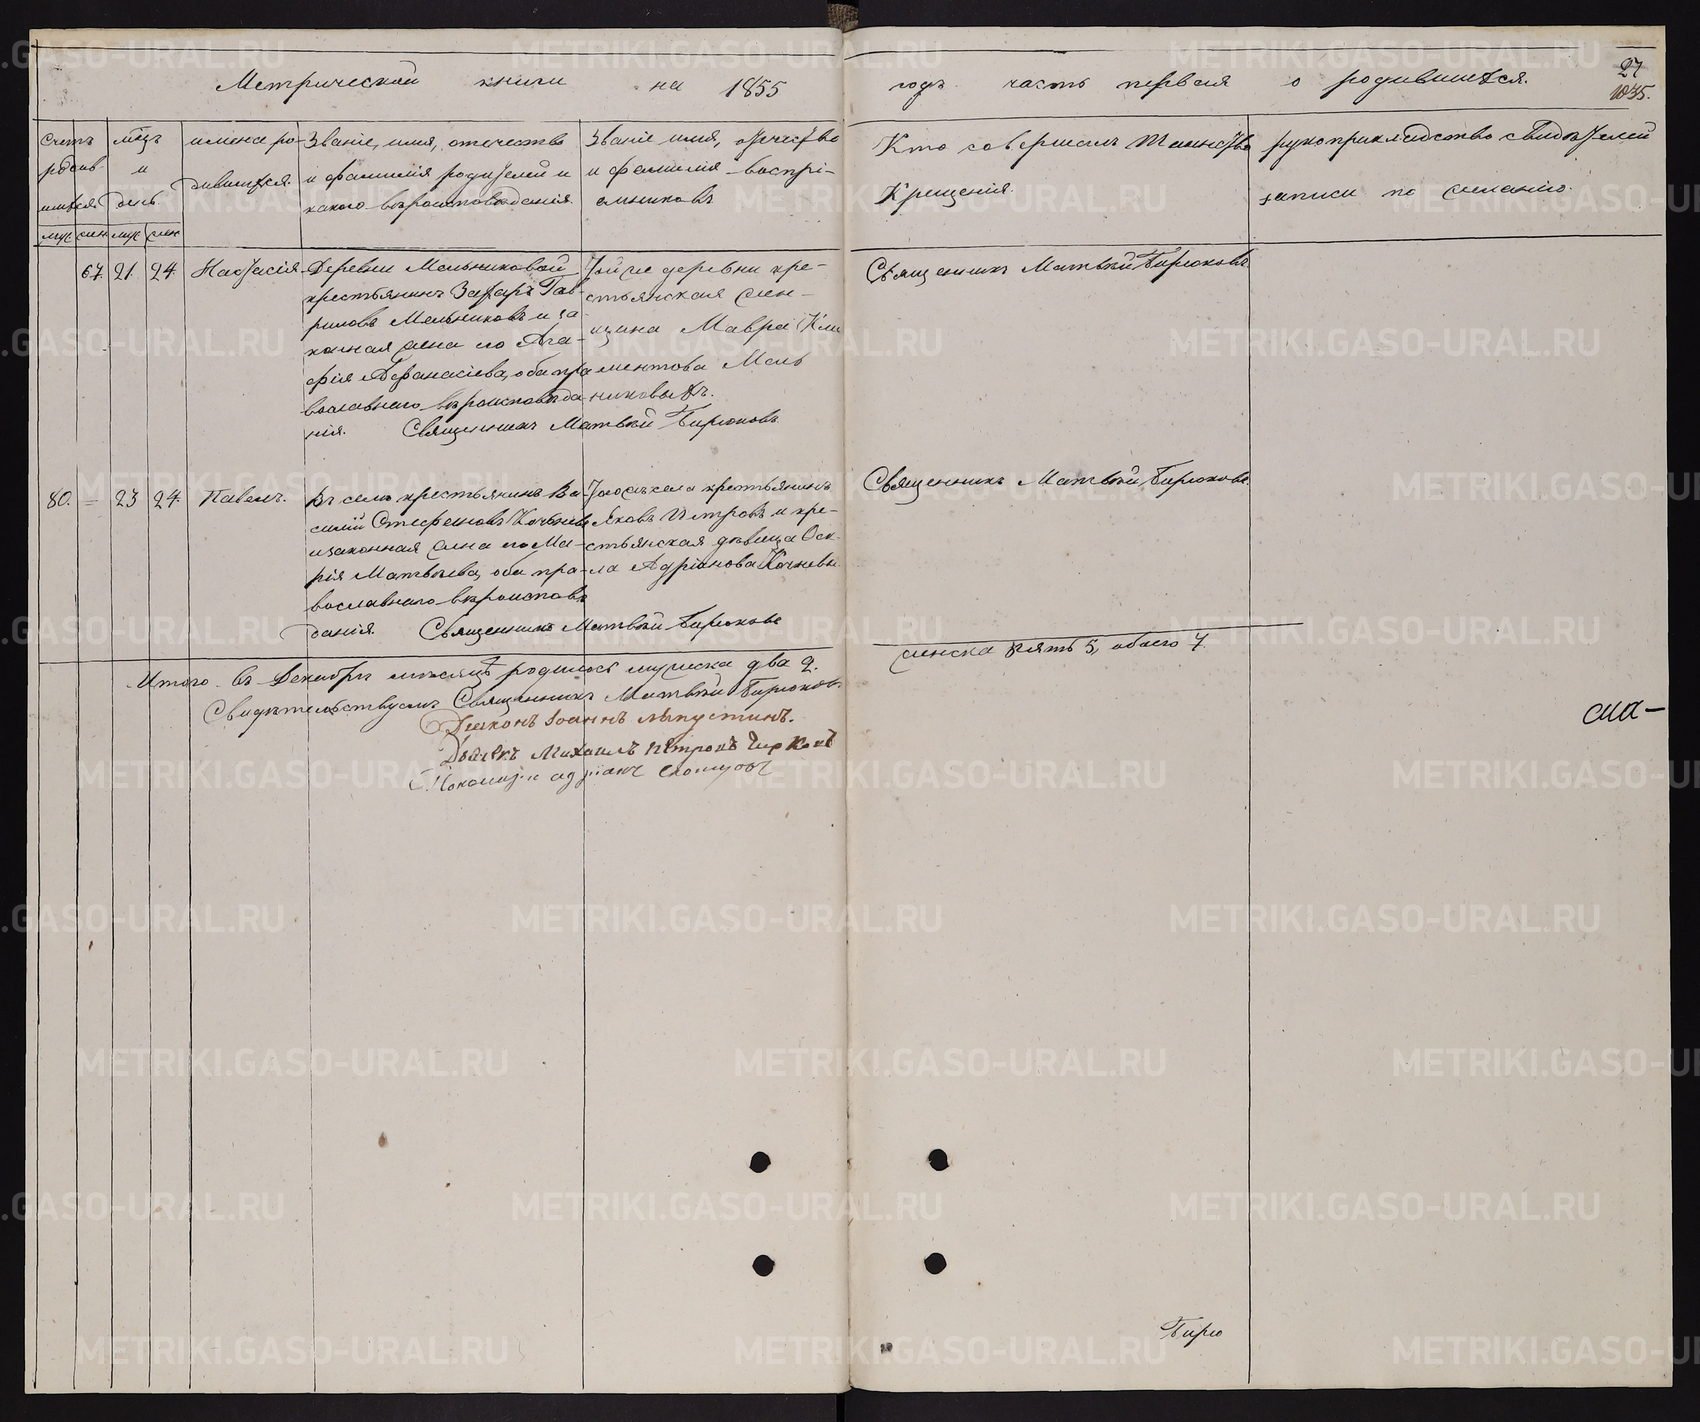 Метрической книги на 1855
годъ часть первая о родившихся.
27
1035.
Счетъ родив-
шихся
мѣсяцъ
и
день
имена ро-
дившихся.
Званіе, имя, отечество
и фамилія родителей и
какого вѣроисповѣданія
Званіе имя, отечество
и фамилія воспрі-
емниковъ
Кто совершалъ Таинство
Крещенія.
рукоприкладство свидѣтелей
записи по желанію.
муж жен муж жен
67. 21. 24. Настасія
Деревни Мельниковой
крестьянинъ Захаръ Гав-
риловъ Мельниковъ и за-
конная жена его Ага-
фія Афанасіева, оба пра
вославнаго вѣроисповѣда
нія.
Тойже деревни кре-
стьянская жен-
щина Мавра Кли
ментова Мель
никовыхъ.
Священникъ Матвѣй Бирюковъ
Священникъ Матвѣй Бирюковъ
80. = 23 24. Павелъ.
Въ селѣ крестьянинъ Ва-
силій Стефановъ Кочневъ
и законная жена его Ма-
рія Матвѣева, оба пра-
вославнаго вѣроисповѣ
данія.
Тогожъ села крестьянинъ
Яковъ Петровъ и кре-
стьянская дѣвица Ѳек-
ла Адріанова Кочневы
Священникъ Матвѣй Бирюковъ
Священникъ Матвѣй Бирюковъ.
Итого въ Декабрѣ мѣсяцѣ родилось мужеска два 2.
женска пять 5, обоего 7.
Свидѣтельствуемъ Священникъ Матвѣй Бирюковъ.
Діаконъ Іоаннъ
Дьячекъ Михаилъ Петровъ
Пономарь Адріанъ
Бирю
METRIKI.GASO-URAL.RU